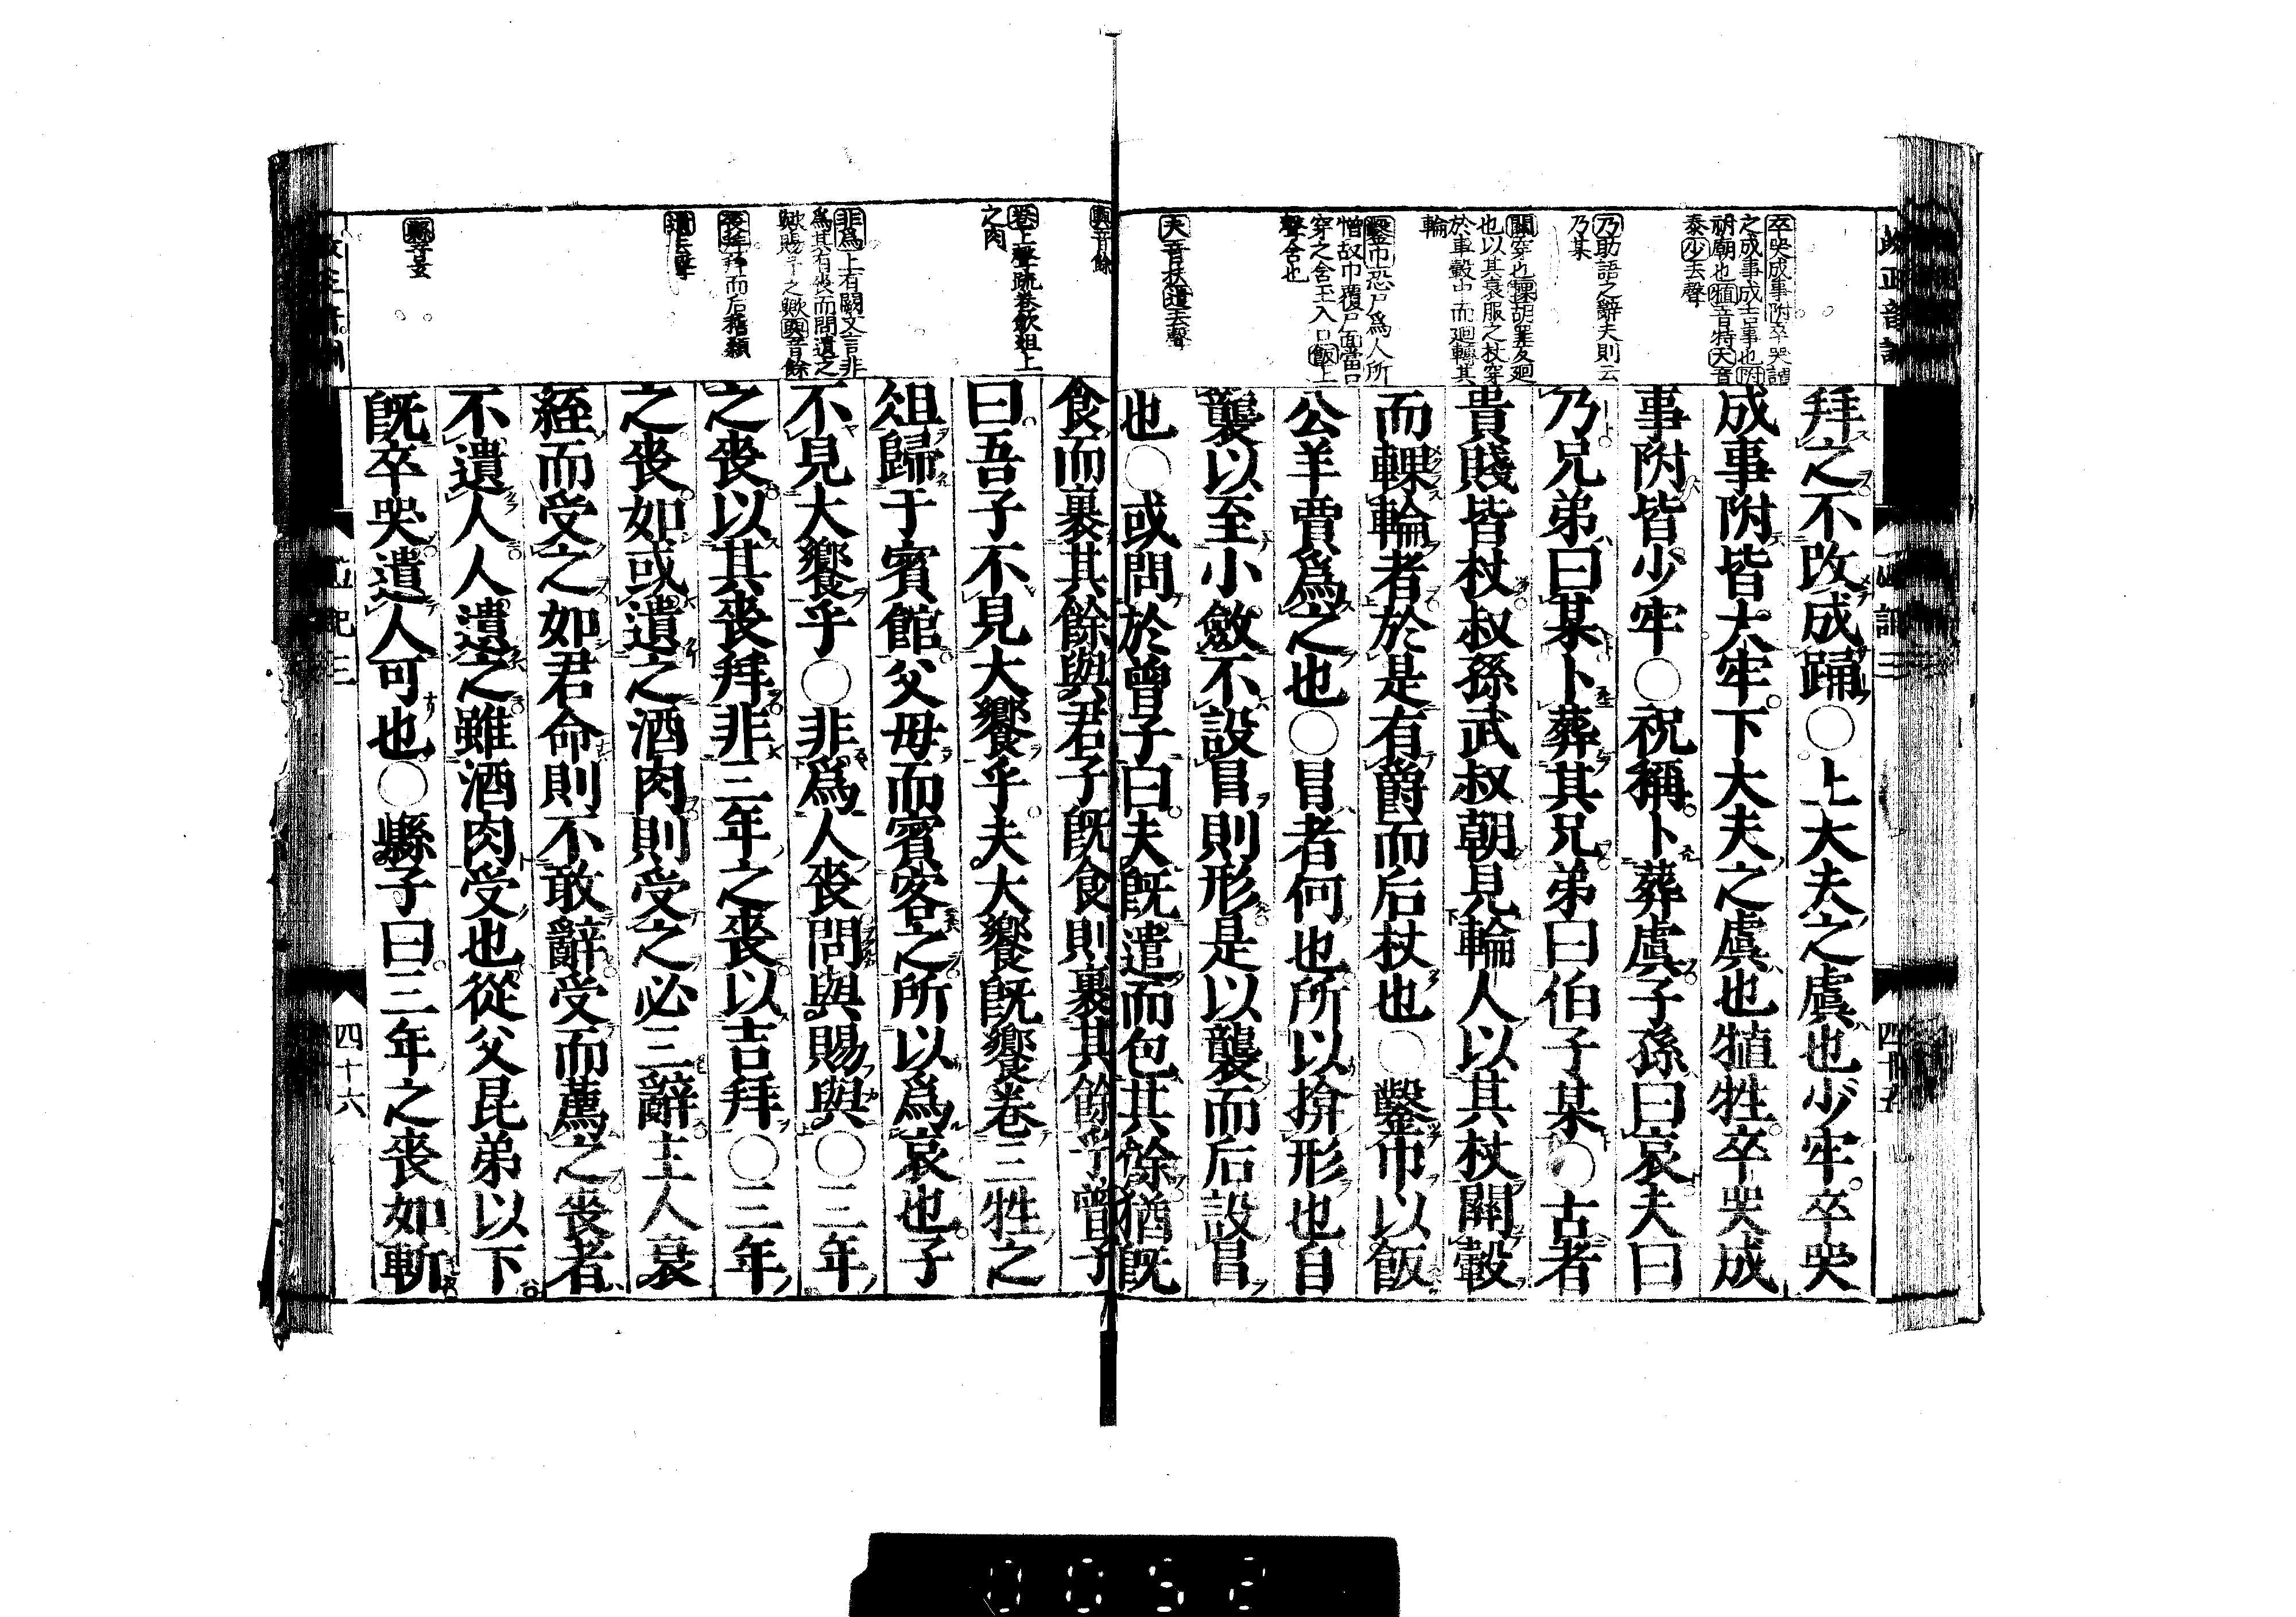 卒哭成事附卒哭謂
之成事成吉事也附
祔廟也犆音特大音
泰少去聲
乃助語之辭夫則云
乃某
關穿也輠胡罪反廻
也以其衰服之杖穿
於車轂中而廻轉其
輪
鑿巾恐尸爲人所
憎故巾覆尸面當口
穿之含玉入口飯上
聲含也
夫音扶遣去聲
拜之不改成踊○上大夫之虞也少牢卒哭
成事附皆大牢下大夫之虞也犆牲卒哭成
事附皆少牢○祝稱卜葬虞子孫曰哀夫曰
乃兄弟曰某卜葬其兄弟曰伯子某○古者
貴賤皆杖叔孫武叔朝見輪人以其杖關轂
而輠輪者於是有爵而后杖也○鑿巾以飯
公羊賈爲之也○冒者何也所以揜形也自
襲以至小斂不設冒則形是以襲而后設冒
也○或問於曾子曰夫既遣而包其餘猶既
四十五
與音餘
卷上聲疏卷歛俎上
之肉
非爲上有闕文言非
爲其有喪而問遺之
歟賜予之歟與音餘
喪拜拜而后稽顙
遺去聲
縣音玄
食而裹其餘與君子既食則裹其餘乎曾子
曰吾子不見大饗乎夫大饗既饗卷三牲之
俎歸于賓館父母而賓客之所以爲哀也子
不見大饗乎○非爲人喪問與賜與○三年
之喪以其喪拜非三年之喪以吉拜○三年
之喪如或遺之酒肉則受之必三辭主人衰
絰而受之如君命則不敢辭受而薦之喪者
不遺人人遺之雖酒肉受也從父昆弟以下
既卒哭遺人可也○縣子曰三年之喪如斬
四十六
0052